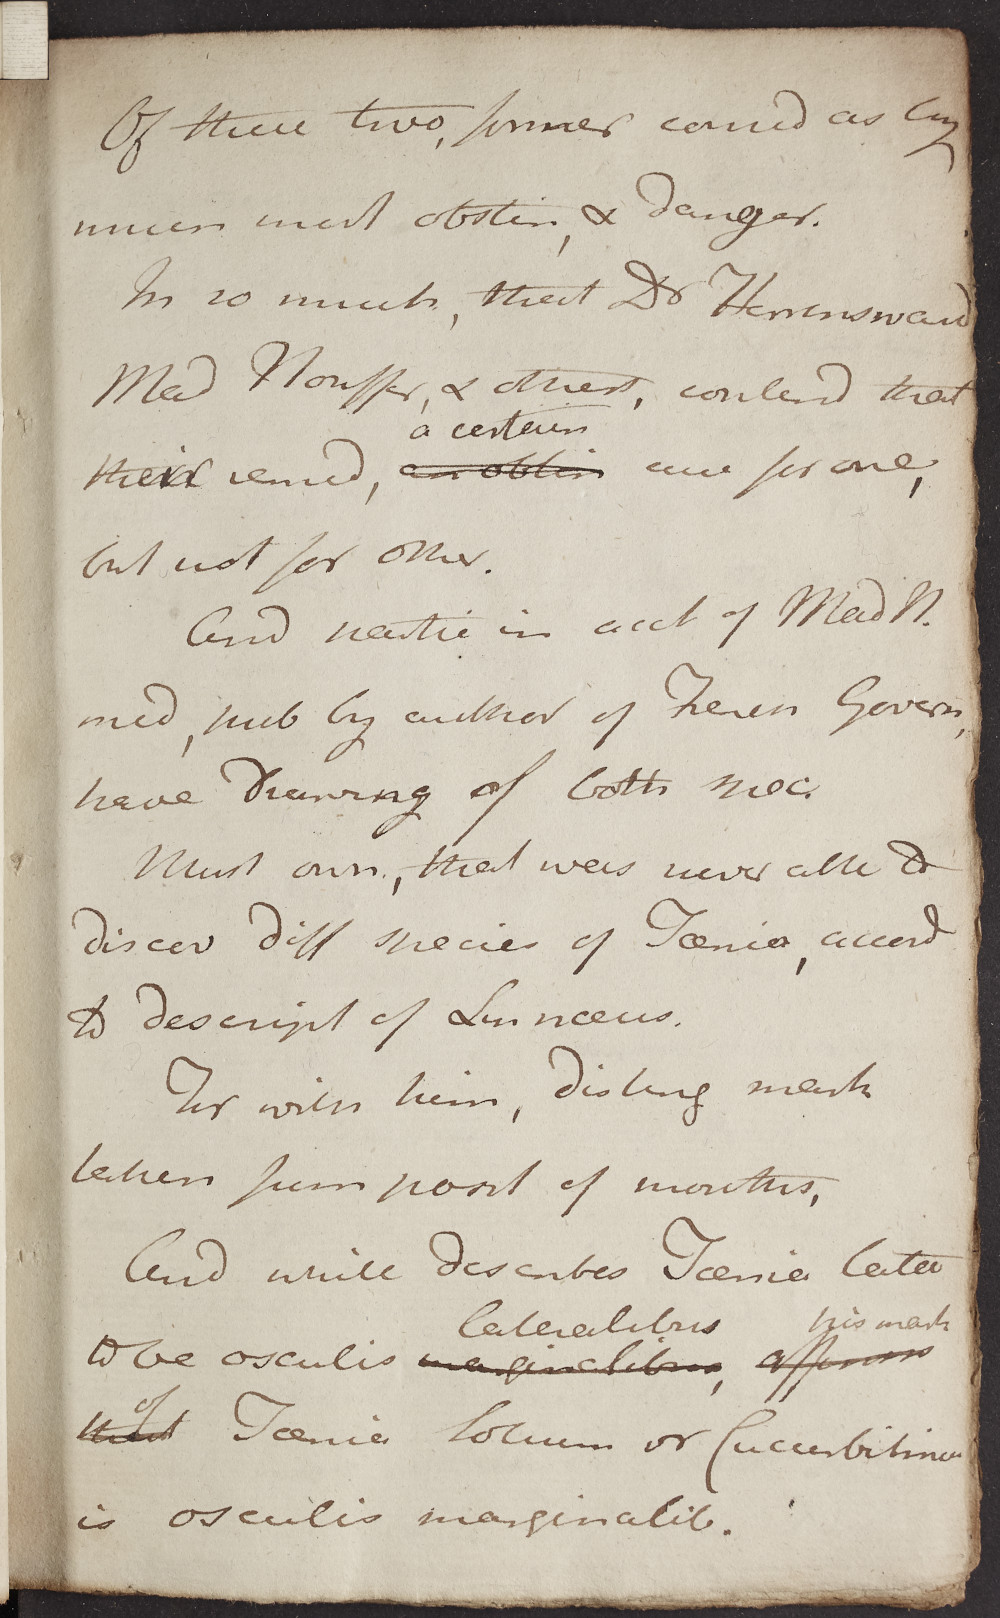 Of these two, former consid as by
much most obstin, & danger.
In so much, that Dr Herrenswand
Mad Nouffer, & others, contend that
their remed, a certain an obstin cure for one,
but not for other.
And partic in acct of Mad N.
med, pub by author of French Govern,
have Drawing of both spec.
Must own, that was never able to
discov diff species of Tænia, accord
to descript of Linnæus.
For with him, disting mark
taken from posit of mouths,
And while describes Tænia lata
to be osculis lateralibus marginalibus, his mark affirms
of that Tænia Solium or Cucurbitina
is osculis marginalib.